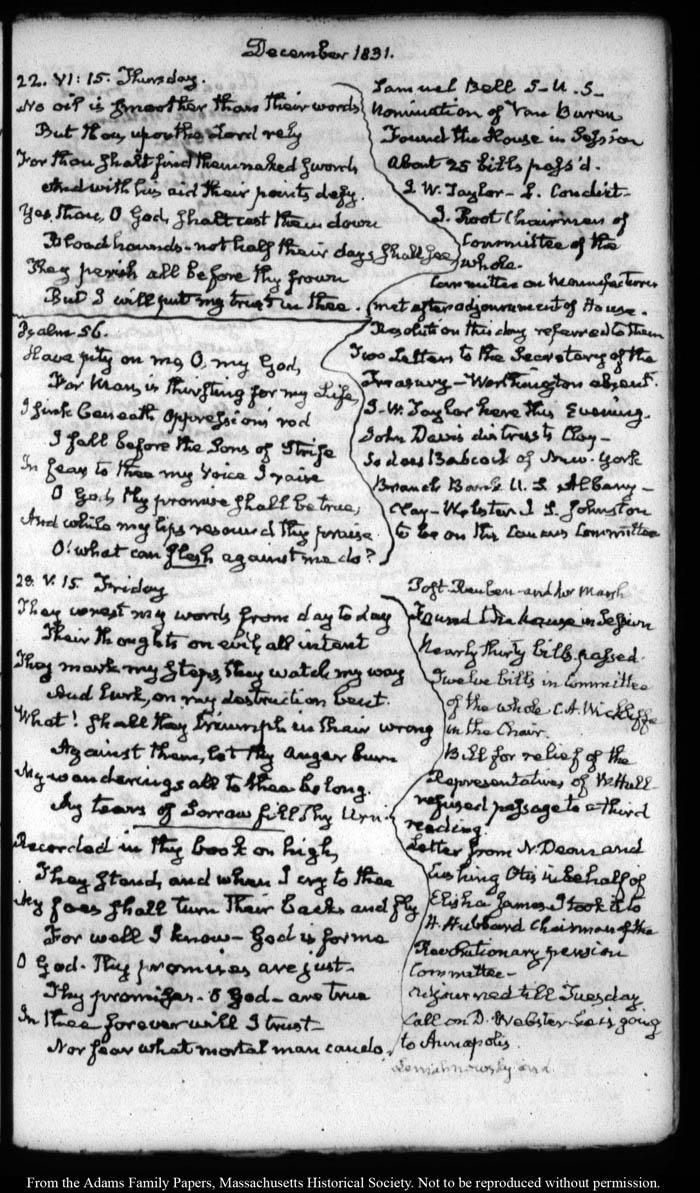 December 1831.
22. VI: 15. Thursday.
No oil is smoother than their words
But thou, upon the Lord rely
For thou shalt find them naked swords
And with his aid their points defy.
Yes, thou, O God, shalt cast them down
Bloodhounds - not half their days shall see
They perish all before thy frown
But I will put my trust in thee.
Psalm 56.
Have pity on me, O, my God,
For Man, is thirsting for my Life,
I sink beneath Oppression's rod
I fall before the Sons of Strife
In fear to thee my Voice I raise
O God, thy promise shall be true,
And while my lips resound thy praise
O! what can flesh against me do?
23. V. 15. Friday
They wrest my words from day to day
Their thoughts on evil, all intent
They mark my steps, they watch my way
And lurk, on my destruction bent.
What! shall they triumph in their wrong
Against them, let thy anger burn
My wanderings all to thee belong.
My tears of Sorrow fill thy Urn.
Recorded in thy book on high,
They stand, and when I cry to thee
My foes shall turn their backs and fly
For well I know - God is for me
O God. Thy promises are just.
Thy promises - O God - are true
In thee forever will I trust
Nor fear what mortal man can do.
Samuel Bell S. U. S.
Nomination of Van Buren
Found the House in Session
About 25 bills pass'd.
J. W. Taylor - L. Condict -
J. Root Chairmen of
Committee of the
whole.
Committee on Manufactures
met after adjournment of House.
Resolution this day referred to them
Two Letters to the Secretary of the
Treasury - Worthington absent.
J. W. Taylor here this Evening.
John Davis distrusts Clay -
So does Babcock of New-York
Branch Bank U. S. Albany -
Clay - Webster J. S. Johnston
to be on the Caucus Committee
Post Reuben and Mr March
Found the house in Session
Nearly thirty bills passed.
Twelve bills in Committee
of the whole C. A. Wickliffe
in the Chair.
Bill for relief of the
Representatives of W. Hull
refused passage to a third
reading.
Letter from N. Dean and
Cushing Otis in behalf of
Elisha James. I took it to
H. Hubbard Chairman of the
Revolutionary pension
Committee -
Adjourned till Tuesday.
Call on D. Webster - he is going
to Annapolis.
and
From the Adams Family Papers, Massachusetts Historical Society. Not to be reproduced without permission.